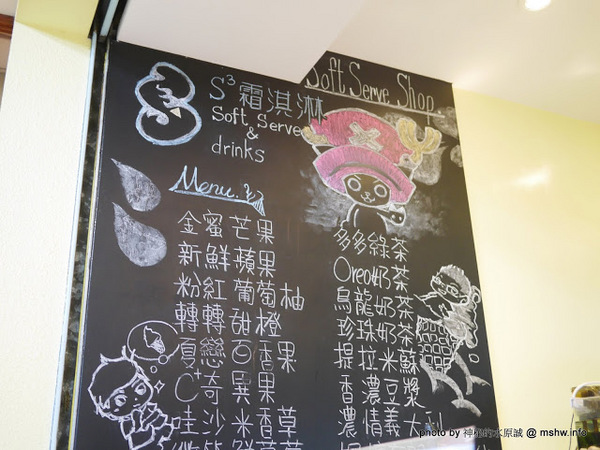 Soft Serve Shop
S³霜淇淋
Soft Serve
&
drinks
Menu
金蜜芒果
新鮮蘋果
粉紅葡萄柚
轉轉甜橙
夏戀百香果
C⁺奇異果
佳沙米香草
多多綠茶
Oreo奶茶
烏龍奶茶
珍珠奶茶
提拉米蘇
香濃豆漿
濃情義大利
photo by 神秘的水原誠 @ mshw.info